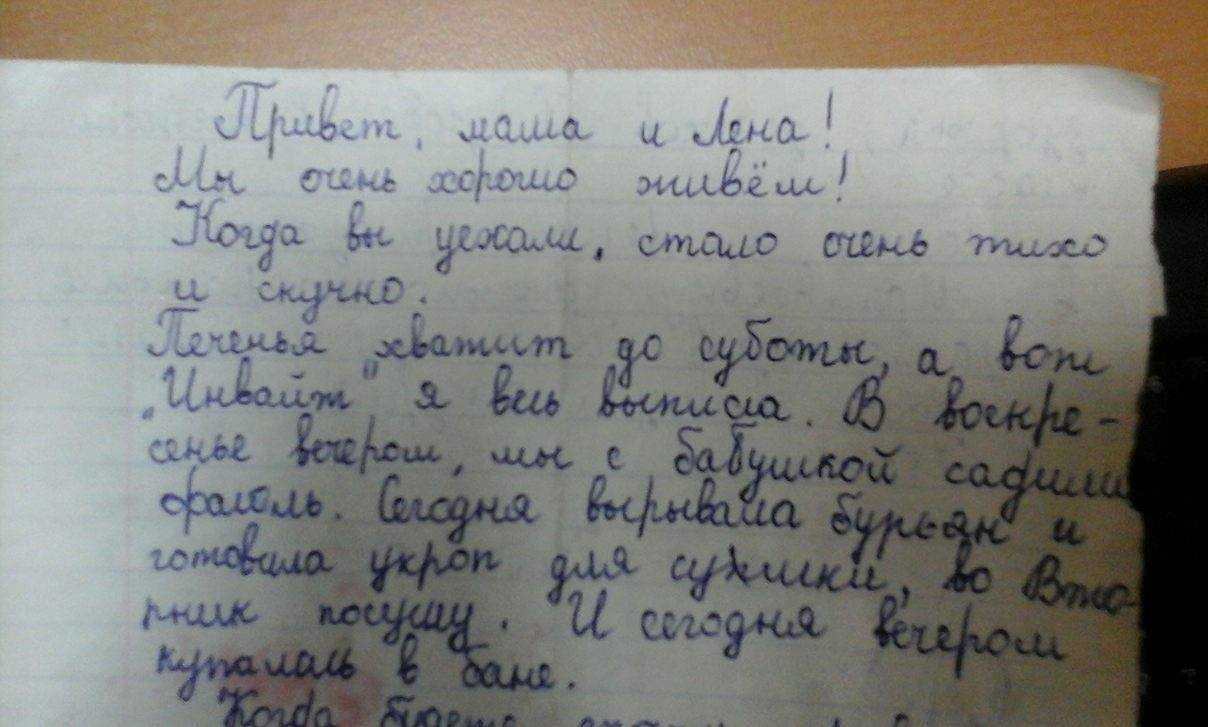 Привет, мама и Лена!
Мы очень хорошо живём!
Когда вы уехали, стало очень тихо
и скучно.
Печенья хватит до суботы, а вот
„Инвайт" я весь выписла. В воскре-
сенье вечером, мы с бабушкой садили
фасоль. Сегодня вырывала бурьян и
готовила укроп для сушки, во Вто-
рник посушу. И сегодня вечером
купалась в бане.
Когда будете